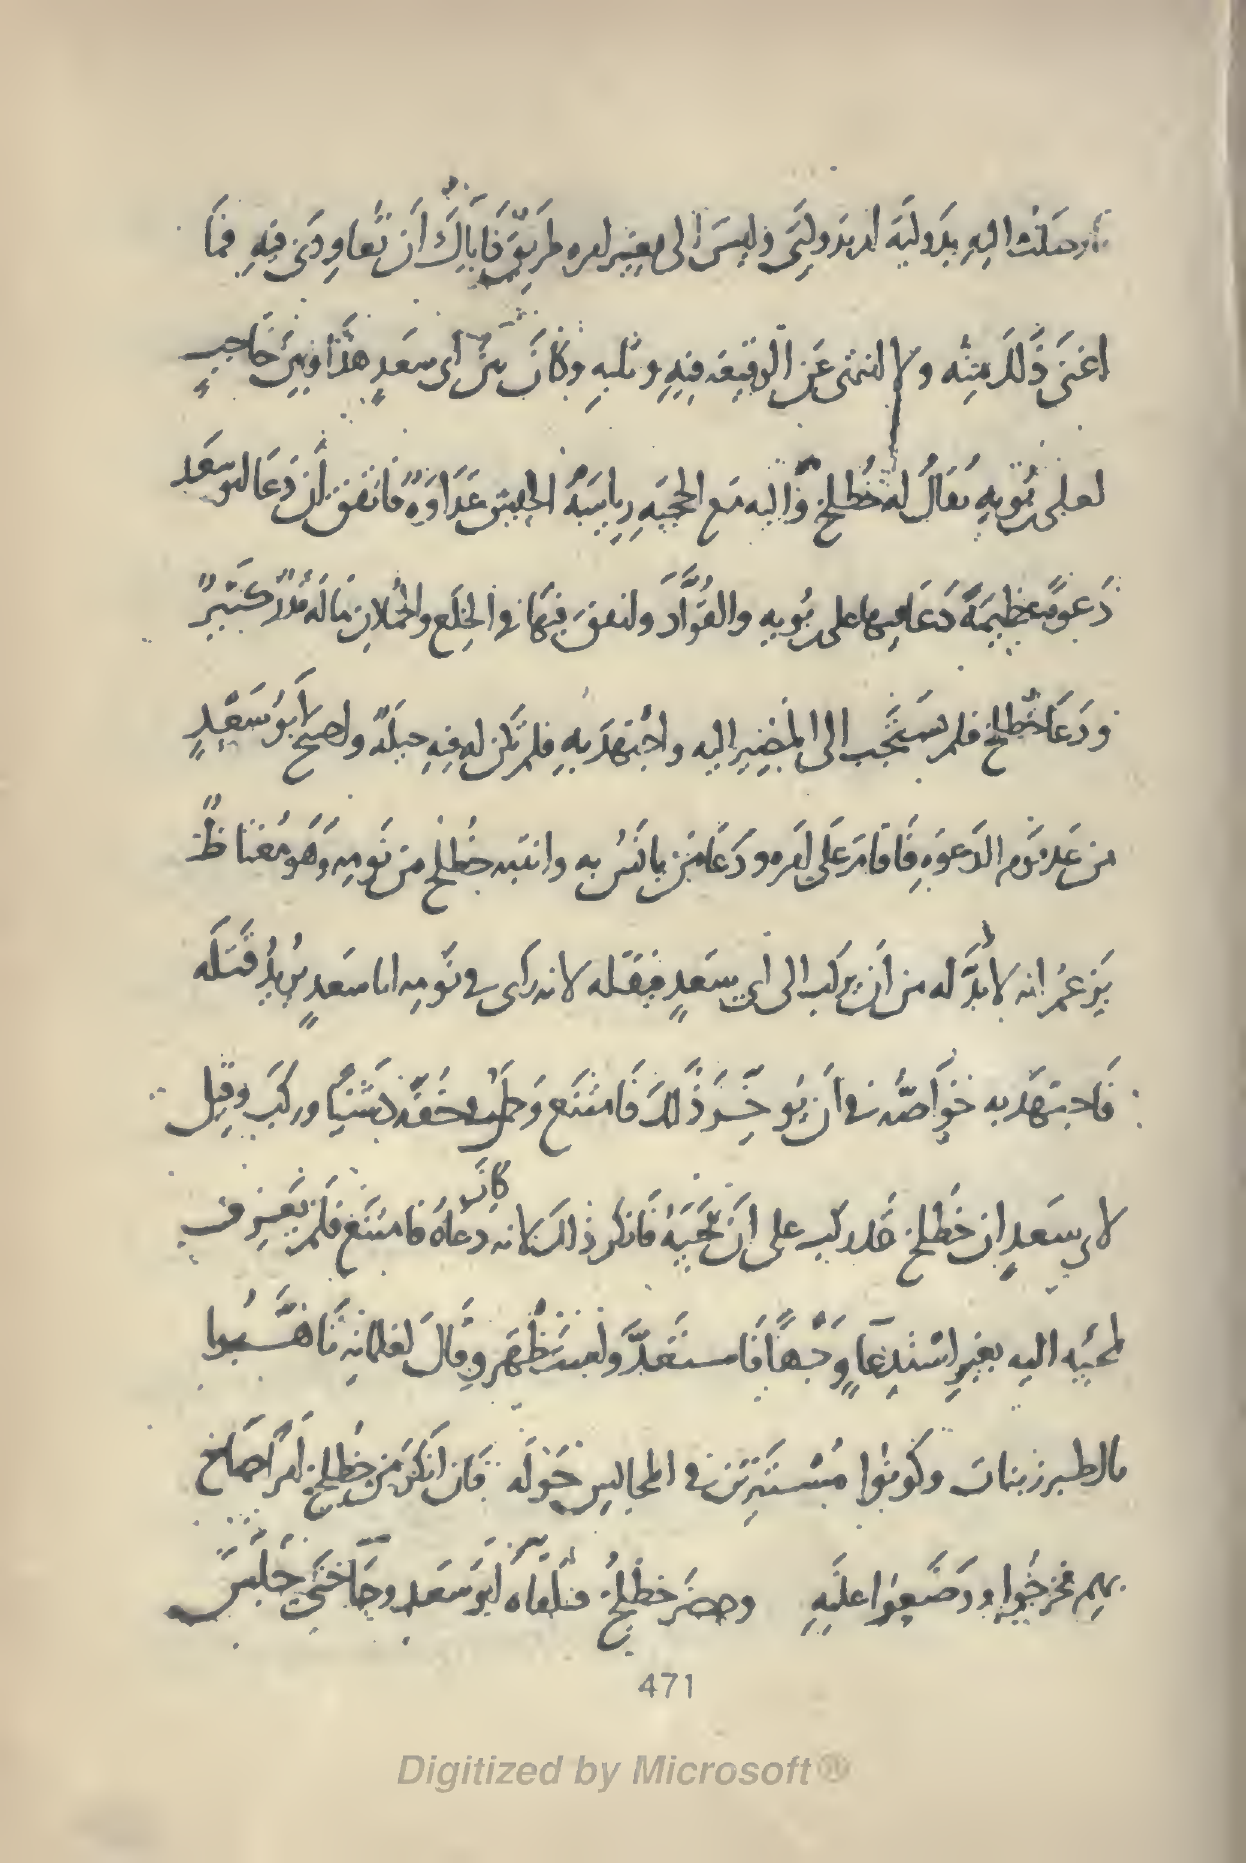 وصلت اليه بدولته او بدولتى وليس الى تغيير امره طريق فاياك ان تعاودنى فيه فما
اغنى ذلك منه ولا انتهى عن الوقيعة فيه وثلبه وكان بين ابى سعد هذا وبين حاجب
لعلى بن بويه يقال له خطلخ واليه مع الحجبة رياسة الجيش عداوة فاتفق ان دعا ابو سعد
دعوة عظيمة دعا فيها على بن بويه والقواد وانفق فيها فى الخلع والحملان ماله قدر كثير
ودعا خطلخ فلم يستجب الى المضير اليه واجتهد به فلم تكن له فيه حيلة واصبح ابو سعد
من غد يوم الدعوة فاقام على امره ودعا من يانس به وانتبه خطلخ من نومه وهو مغتاظ
يزعم انه لا بد له من ان يركب الى ابى سعد فيقتله لانه راى فى نومه ابا سعد يريد قتله
فاجتهد به خواصه فى ان يوخر ذلك فامتنع وحمل فى خفه دشنيا وركب وقيل
لابى سعد ان خطلخ قد ركب على ان يجيه فانكر ذلك لانه كان دعاه فامتنع فلم يعرف
لمجيه اليه بغير استدعا وجها فاستعد واستظهر وقال لغلمانه تاهبوا
بالطبرزينات وكونوا مستترين فى المجالس حوله فان انكر من خطلخ امرا صاح
بهم فخرجوا ووضعوا عليه وحضر خطلخ فتلقاه ابو سعد وجا حتى جلس
471
Digitized by Microsoft®